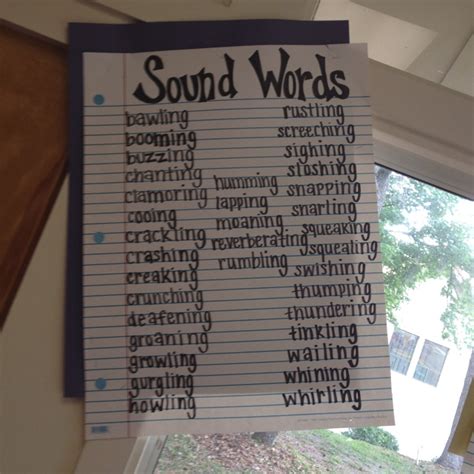 Sound Words
bawling
booming
buzzing
chanting
clamoring
cooing
crackling
crashing
creaking
crunching
deafening
groaning
growling
gurgling
howling
humming
lapping
moaning
reverberating
rumbling
rustling
screeching
sighing
sloshing
snapping
snarling
squeaking
squealing
swishing
thumping
thundering
tinkling
wailing
whining
whirling